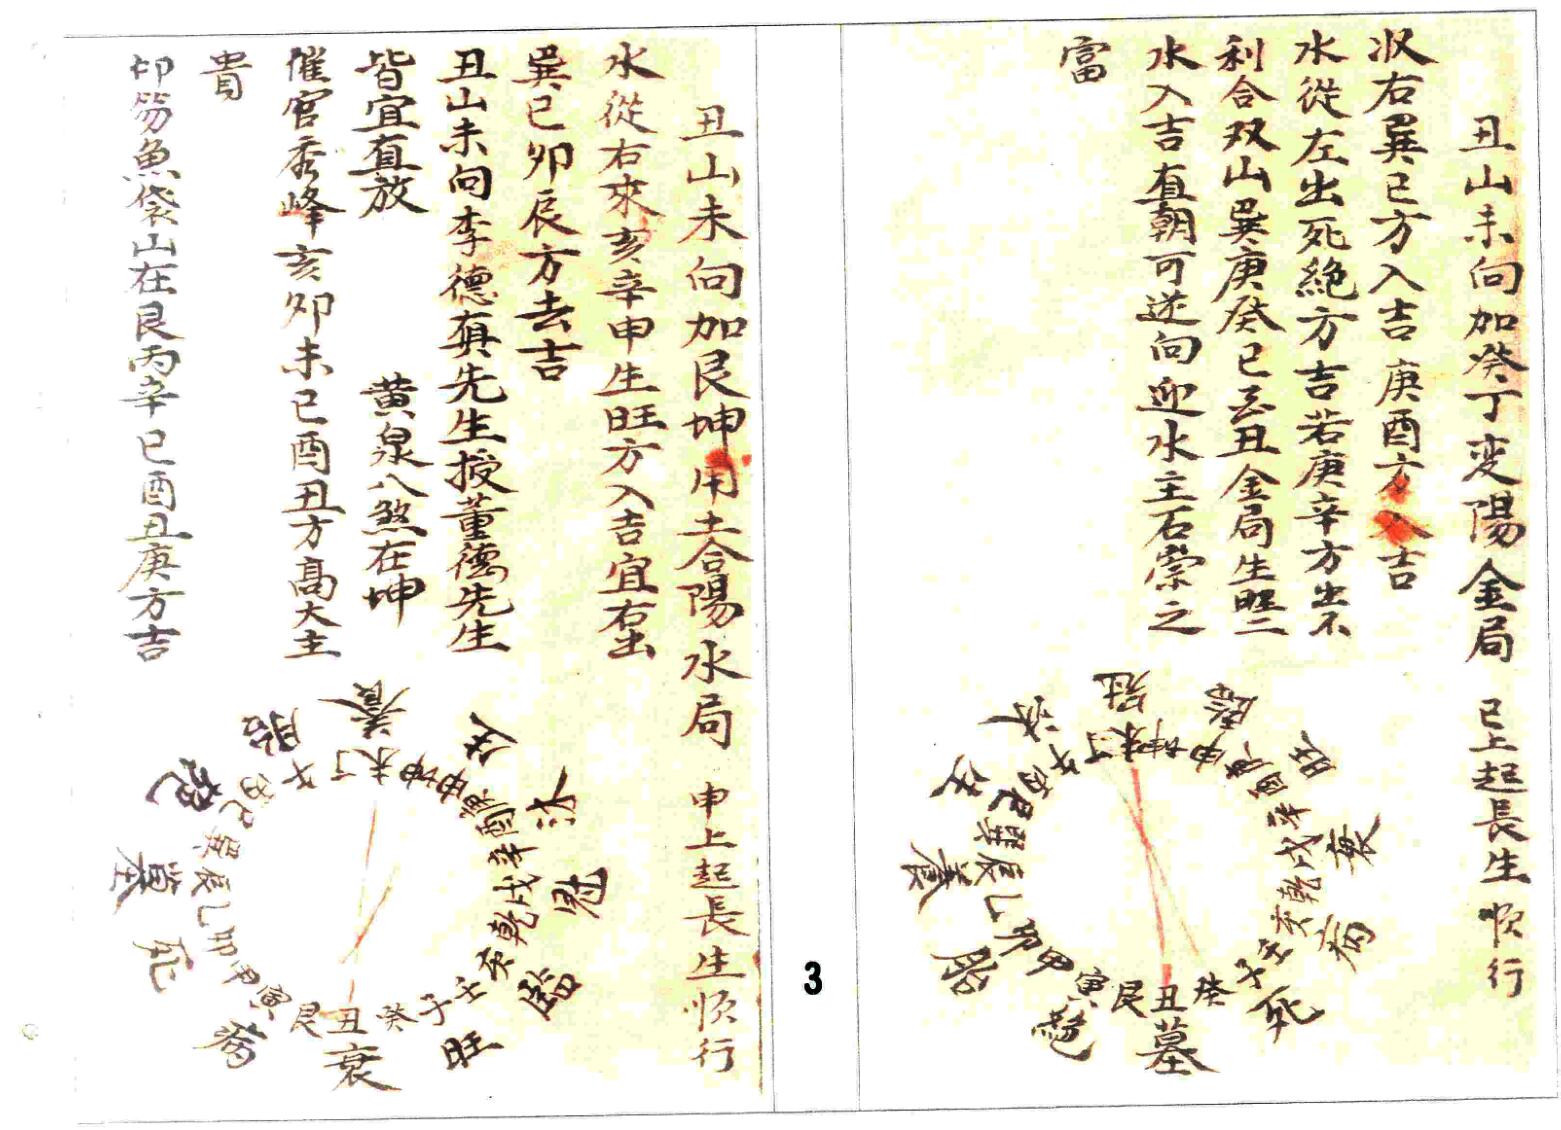 丑山未向加癸丁变陽金局 巳上起長生順行
収右巽巳方入吉 庚酉方入吉
水從左出死絕方吉若庚辛方出不
利合双山巽庚癸巳玄丑金局生旺二
水入吉直朝可逆向迎水主石崇之
富
冠
臨
旺
衰
病
死
墓
絕
胎
養
生
沐
丁未坤申庚酉辛戌乾亥壬子癸丑艮寅甲卯乙辰巽巳丙午
3
丑山未向加艮坤用去合陽水局 申上起長生順行
水從右來亥辛申生旺方入吉宜右出
巽巳卯辰方去吉
丑山未向李德真先生授董德先生
皆宜直放 黄泉八煞在坤
催官秀峰亥卯未巳酉丑方高大主
貴
印笏魚袋山在艮丙辛巳酉丑庚方吉
養
生
沐
冠
臨
旺
衰
病
死
墓
絕
胎
丁未坤申庚酉辛戌乾亥壬子癸丑艮寅甲卯乙辰巽巳丙午